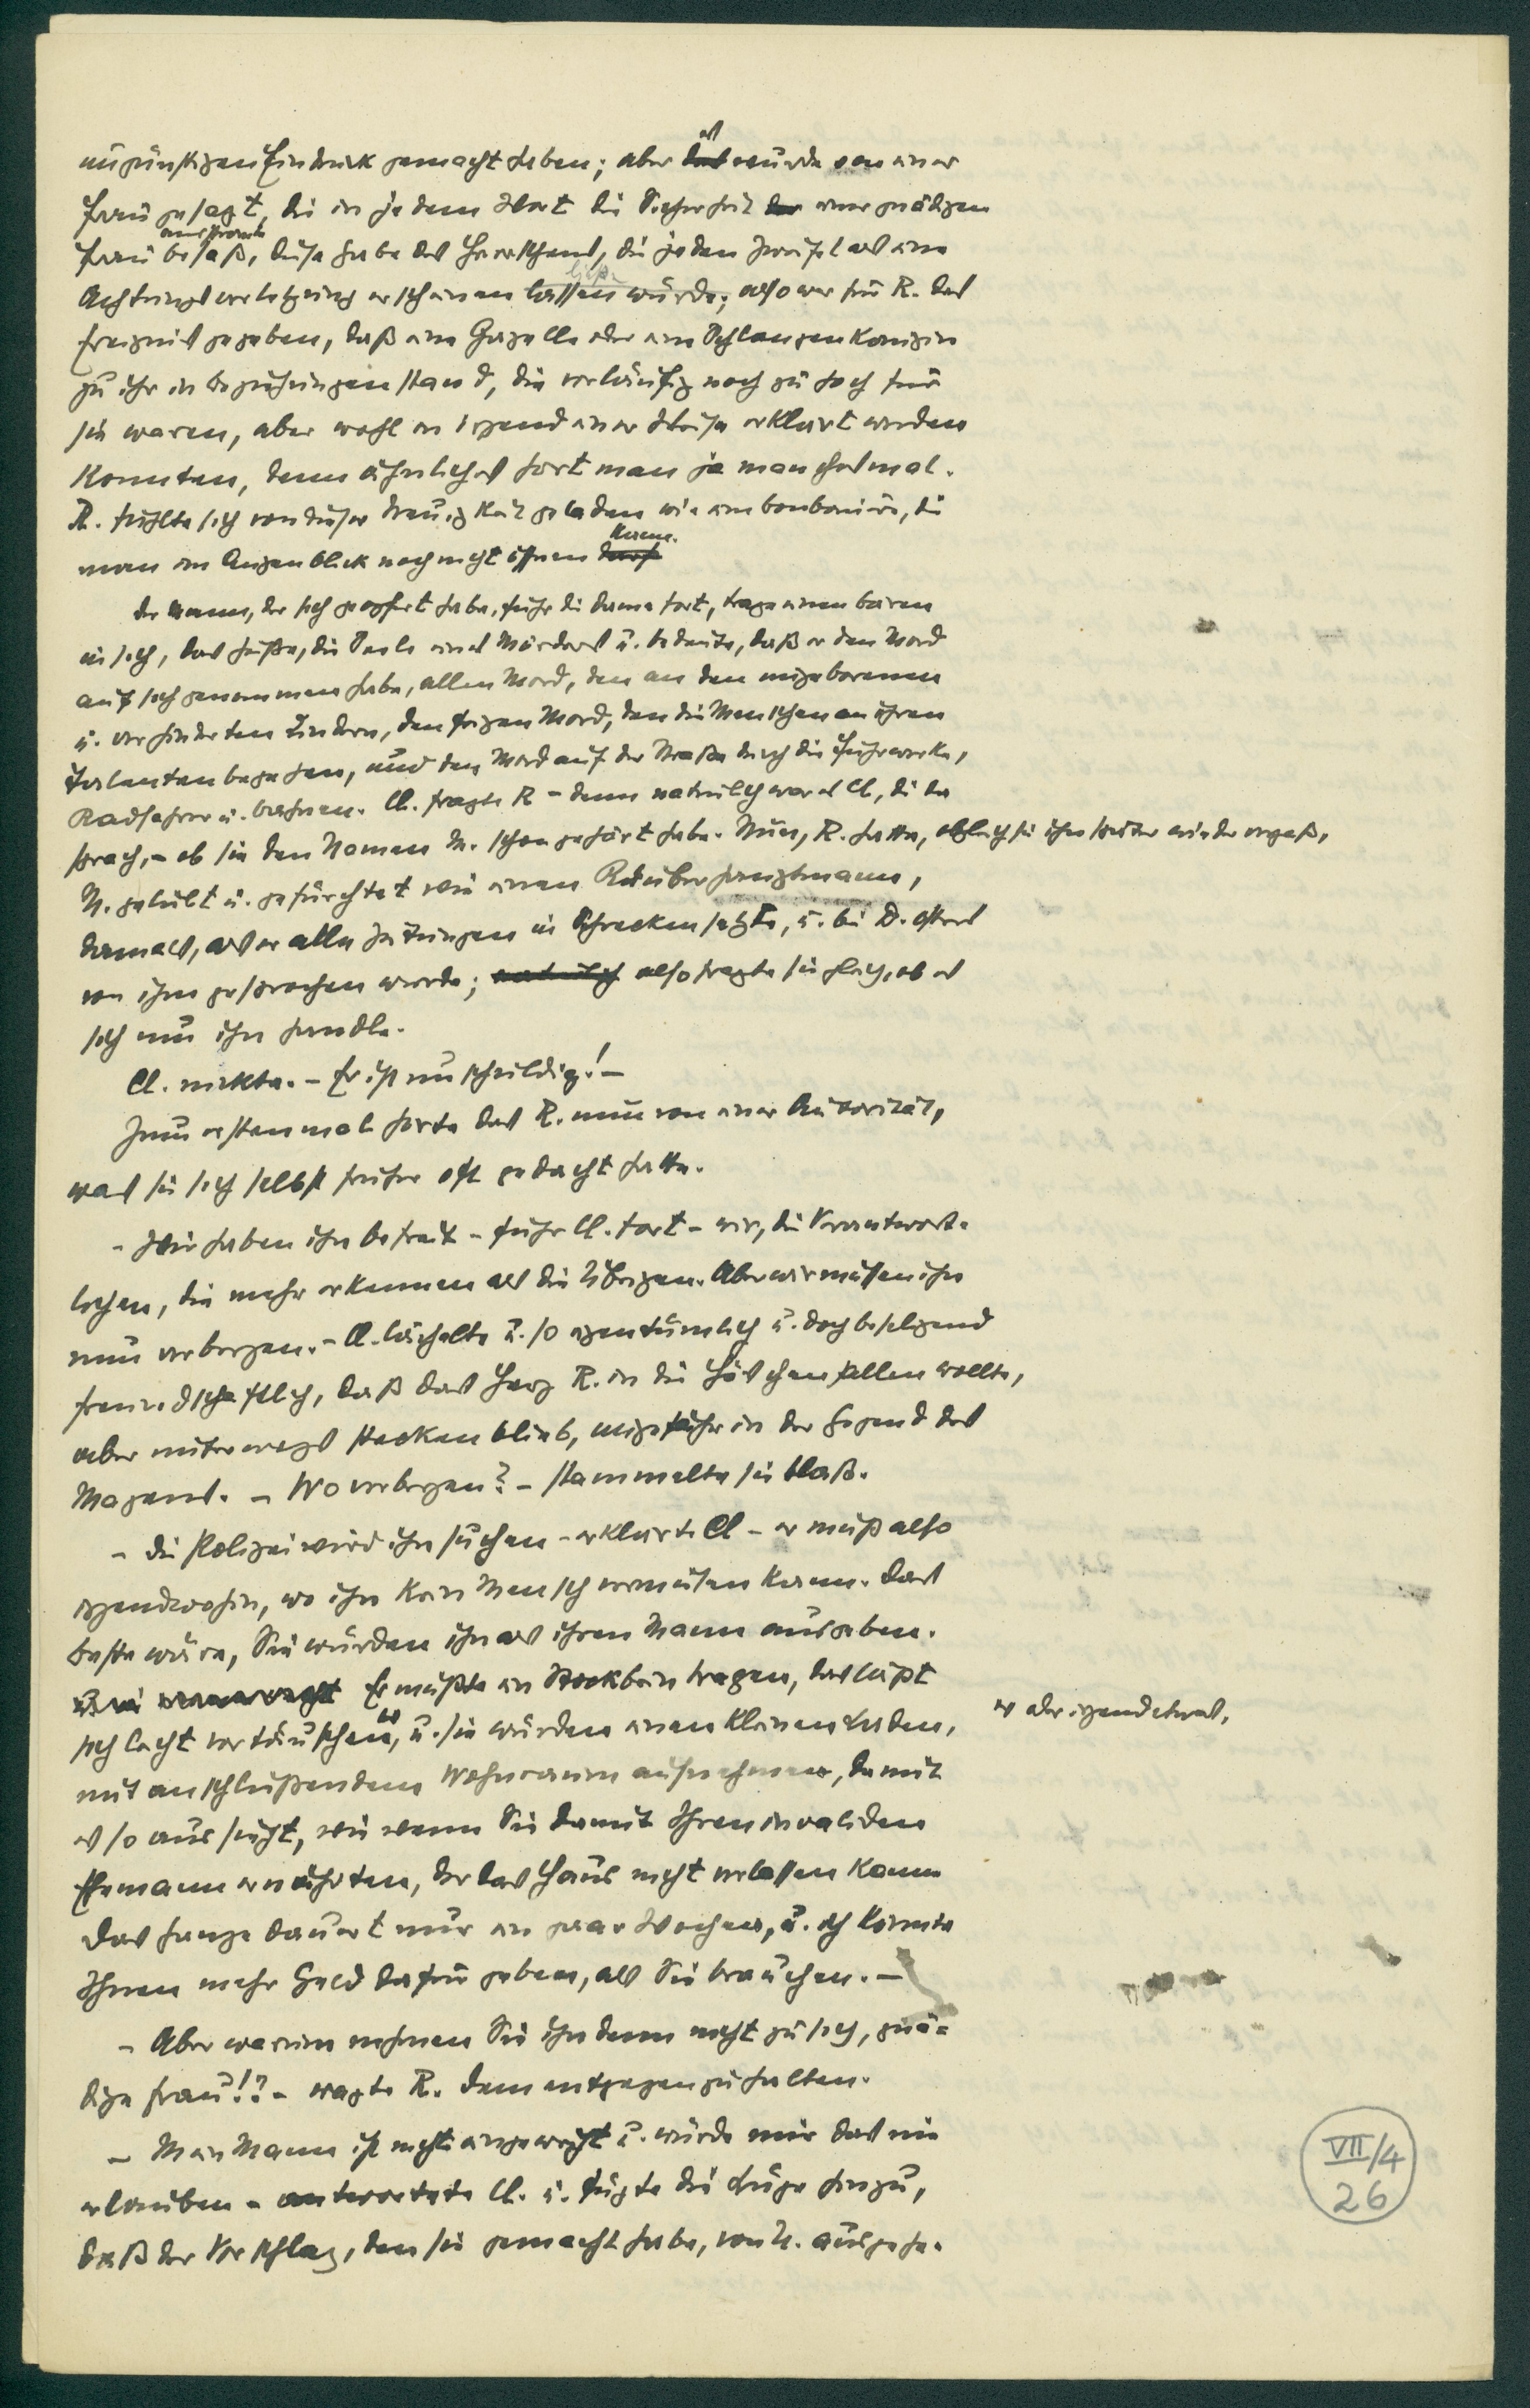 ungünstigen Eindruck gemacht haben; aber das es wurde von einer
Frau gesagt, die in jedem Wort die Sicherheit der einer gnädigen
Frau besaß, ausstrahlte diese Gabe des Herrschens, die jeden Zweifel als eine
Achtungsverletzung erscheinen lassen würde; ließ also war für R. das
Ereignis gegeben, daß eine Gazelle oder eine Schlangenkönigin
zu ihr in Beziehungen stand, die vorläufig noch zu hoch für
sie waren, aber wohl in irgend einer Weise erklärt werden
konnten, denn ähnliches hört man ja manchesmal.
R. fühlte sich von dieser Neuigkeit geladen wie eine Bonboniere, die
man im Augenblick noch nicht öffnen darf kann.
Der Mann, der sich geopfert habe, fuhr die Dame fort, trage einen Bären
in sich, das heiße, die Seele eines Mörders u. bedeute, daß er den Mord
auf sich genommen habe, allen Mord, den an den ungeborenen
u. verhinderten Kindern, den feigen Mord, den die Menschen an ihren
Talenten begehen, und den Mord auf der Straße durch die Fuhrwerke,
Radfahrer u. Bahnen. Cl. fragte R – denn natürlich war es Cl, die da
sprach, – ob sie den Namen M. schon gehört habe. Nun, R. hatte, obgleich sie ihn später wieder vergaß,
M. geliebt u. gefürchtet wie einen Räuberhauptmann,
damals, als er alle Zeitungen in Schrecken setzte, u. bei D. öfters
von ihm gesprochen wurde; natürlich also fragte sie gleich, ob es
sich um ihn handle.
Cl. nickte. – Er ist unschuldig! –
Zum erstenmal hörte das R. nun von einer Autorität,
was sie sich selbst früher oft gedacht hatte.
– Wir haben ihn befreit – fuhr Cl. fort – wir, die Verantwort-
lichen, die mehr erkennen als die Übrigen. Aber wir müssen ihn
nun verbergen. – Cl. lächelte u. so eigentümlich u. doch beseligend
freundschaftlich, daß das Herz R. in die Höschen fallen wollte,
aber unterwegs stecken blieb, ungefähr in der Gegend des
Magens. – Wo verbergen? – stammelte sie blaß.
– Die Polizei wird ihn suchen – erklärte Cl – er muß also
irgendwohin, wo ihn kein Mensch vermuten kann. Das
beste wäre, Sie würden ihn als ihren Mann ausgeben.
Er müßte ein Stockbein tragen, das läßt
sich leicht vortäuschen, u. sie würden einen kleinen Laden,
oder irgendetwas,
mit anschließendem Wohnraum aufnehmen, damit
es so aussieht, wie wenn Sie damit Ihren invaliden
Ehemann ernährten, der das Haus nicht verlassen kann
Das Ganze dauert nur ein paar Wochen, u. ich könnte
Ihnen mehr Geld dafür geben, als Sie brauchen. –
– Aber warum nehmen Sie ihn denn nicht zu sich, gnä-
dige Frau!? – wagte R. dem entgegenzuhalten.
– Mein Mann ist nicht eingeweiht u. würde mir das nie
erlauben – antwortete Cl. u. fügte die Lüge hinzu,
daß der Vorschlag, den sie gemacht habe, von U. ausgehe.
VII/4
26